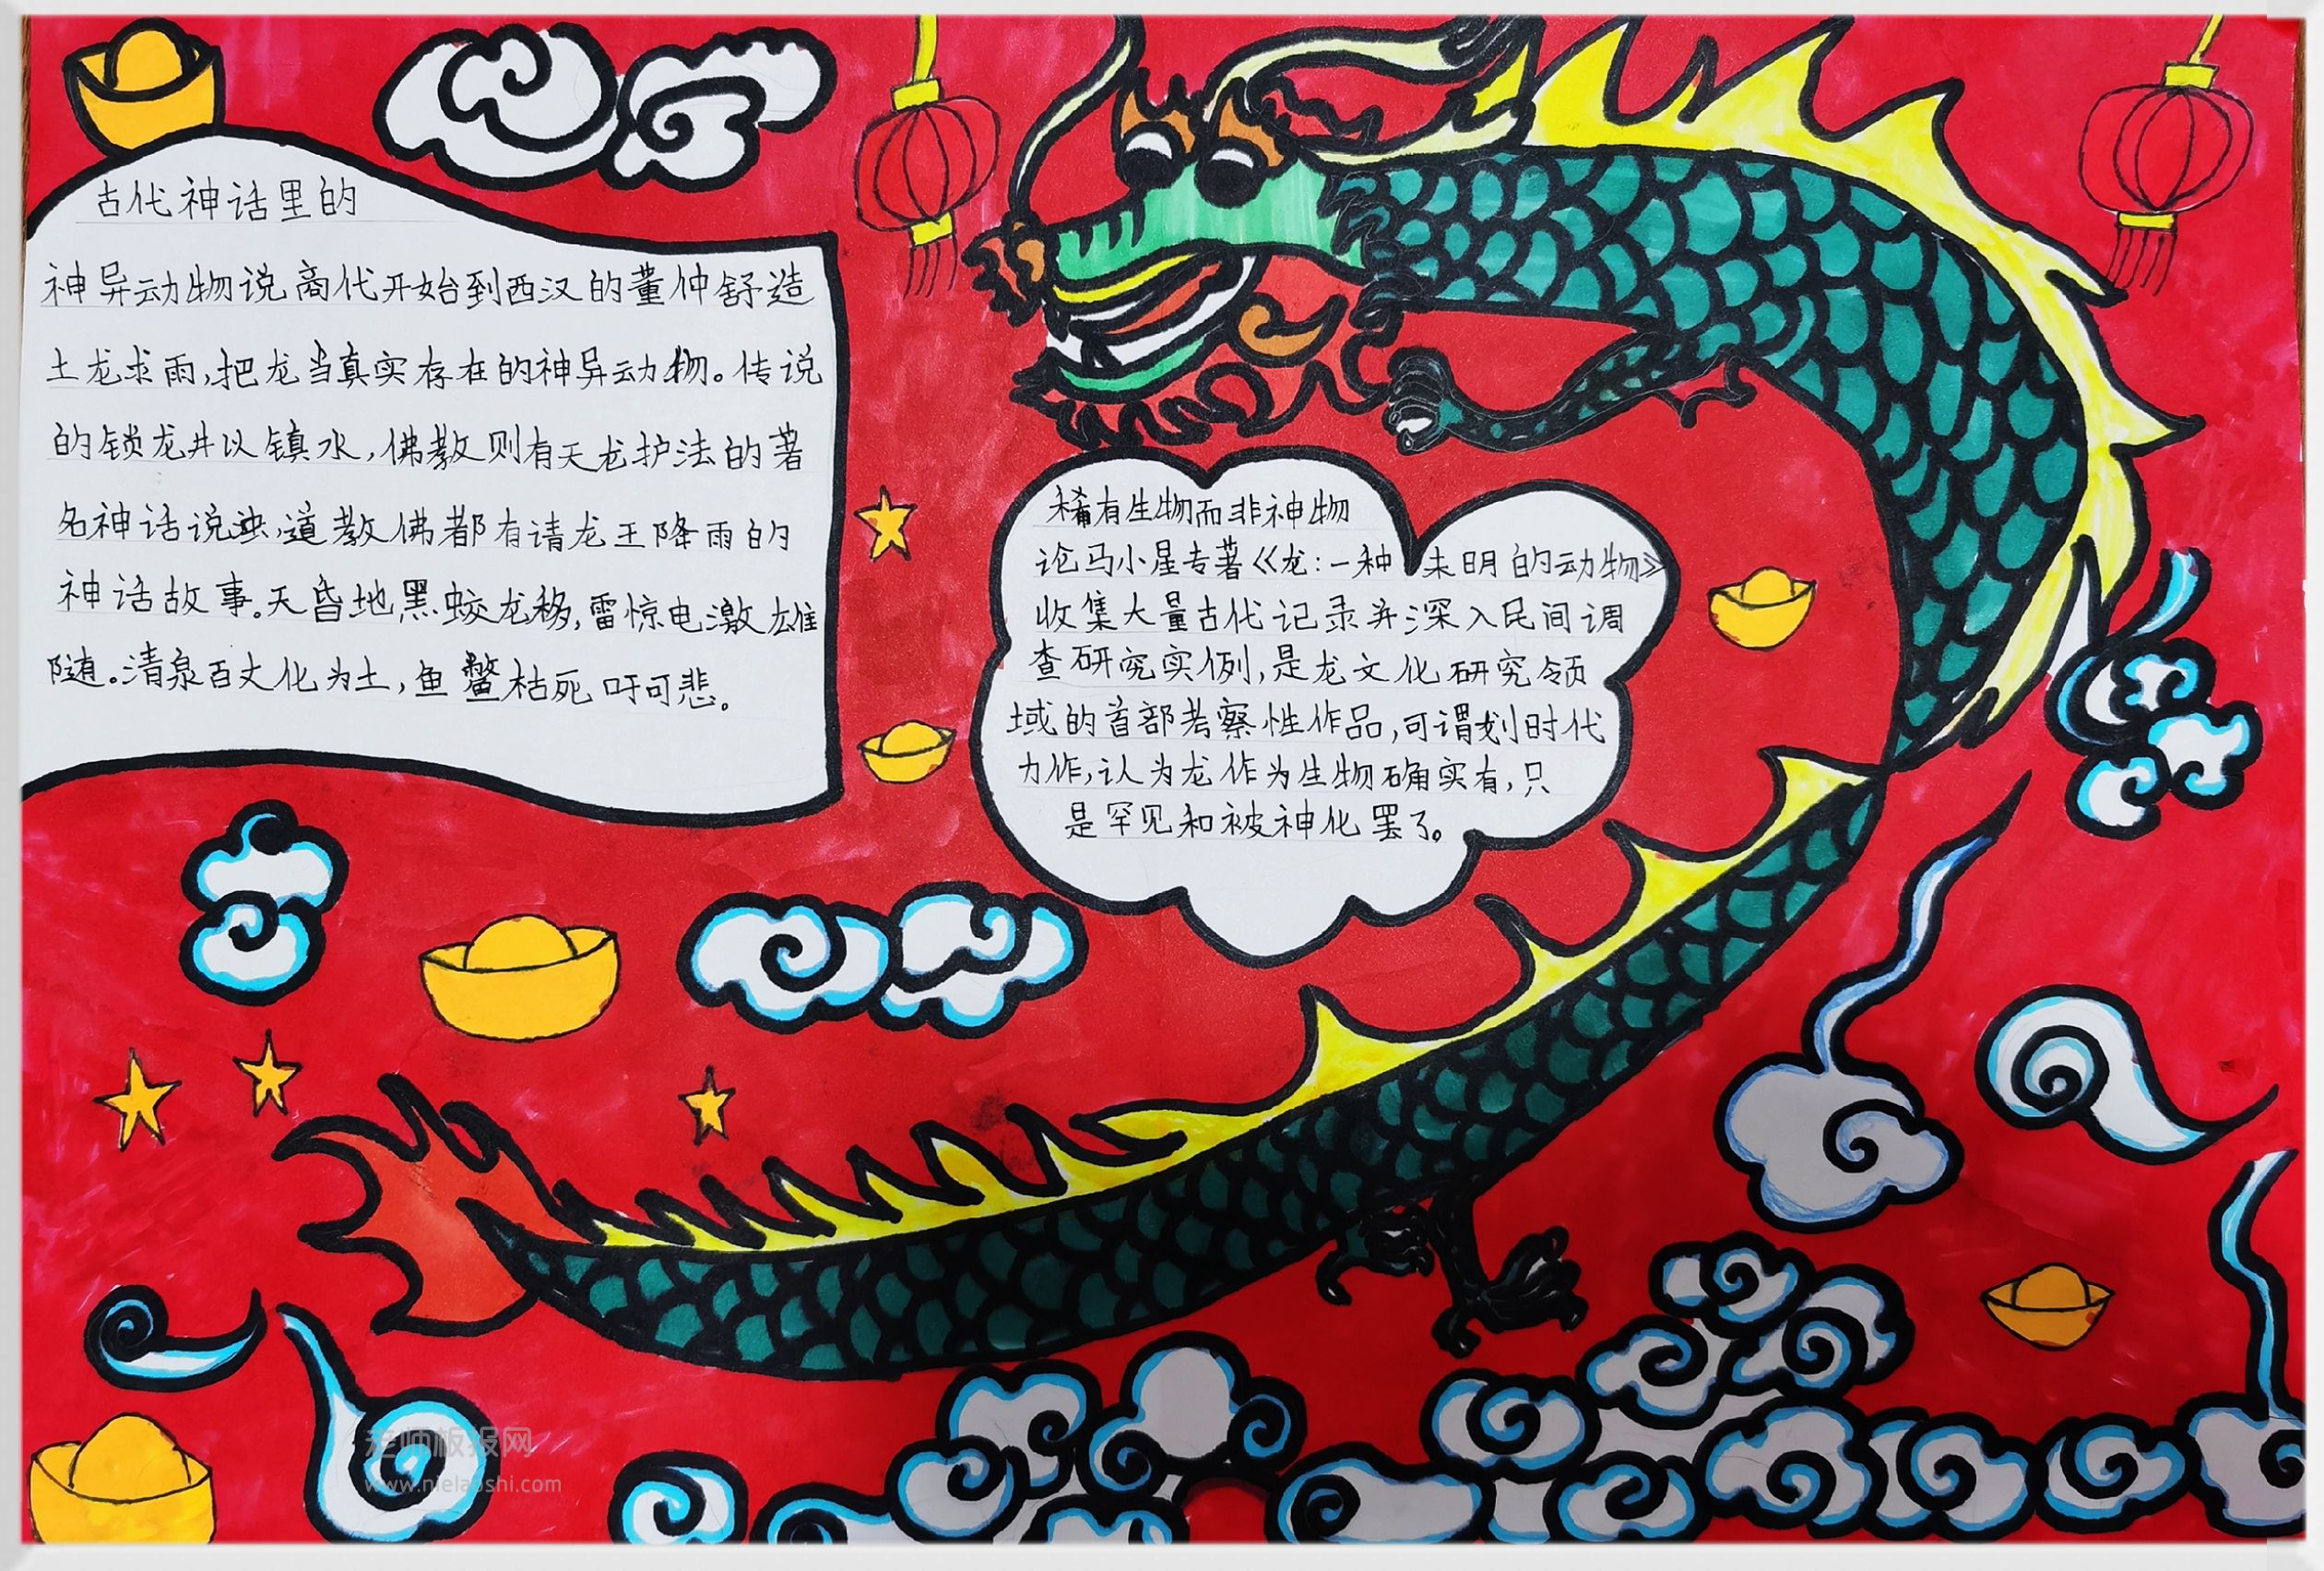 古代神话里的
神异动物说商代开始到西汉的董仲舒造
土龙求雨,把龙当真实存在的神异动物。传说
的锁龙井以镇水,佛教则有天龙护法的著
名神话说,道教佛都有请龙王降雨的
神话故事。天昏地黑蛟龙移,雷惊电激雄
随。清泉百丈化为土,鱼鳖枯死吁可悲。
稀有生物而非神物
论马小星专著《龙:一种未明的动物》
收集大量古代记录并深入民间调
查研究实例,是龙文化研究领
域的首部考察性作品,可谓划时代
力作,认为龙作为生物确实有,只
是罕见和被神化罢了。
老师板报网
www.nielaoshi.com